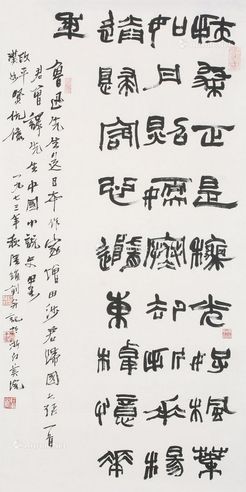 扶桑正是秋光好楓葉
如丹照嫩寒却折垂楊
送歸客心隨東棹憶華
年
魯迅先生送日本作家增田涉君歸國之詩一首
君曾譯先生中國小說史畧
賢伉儷
一九七三年秋